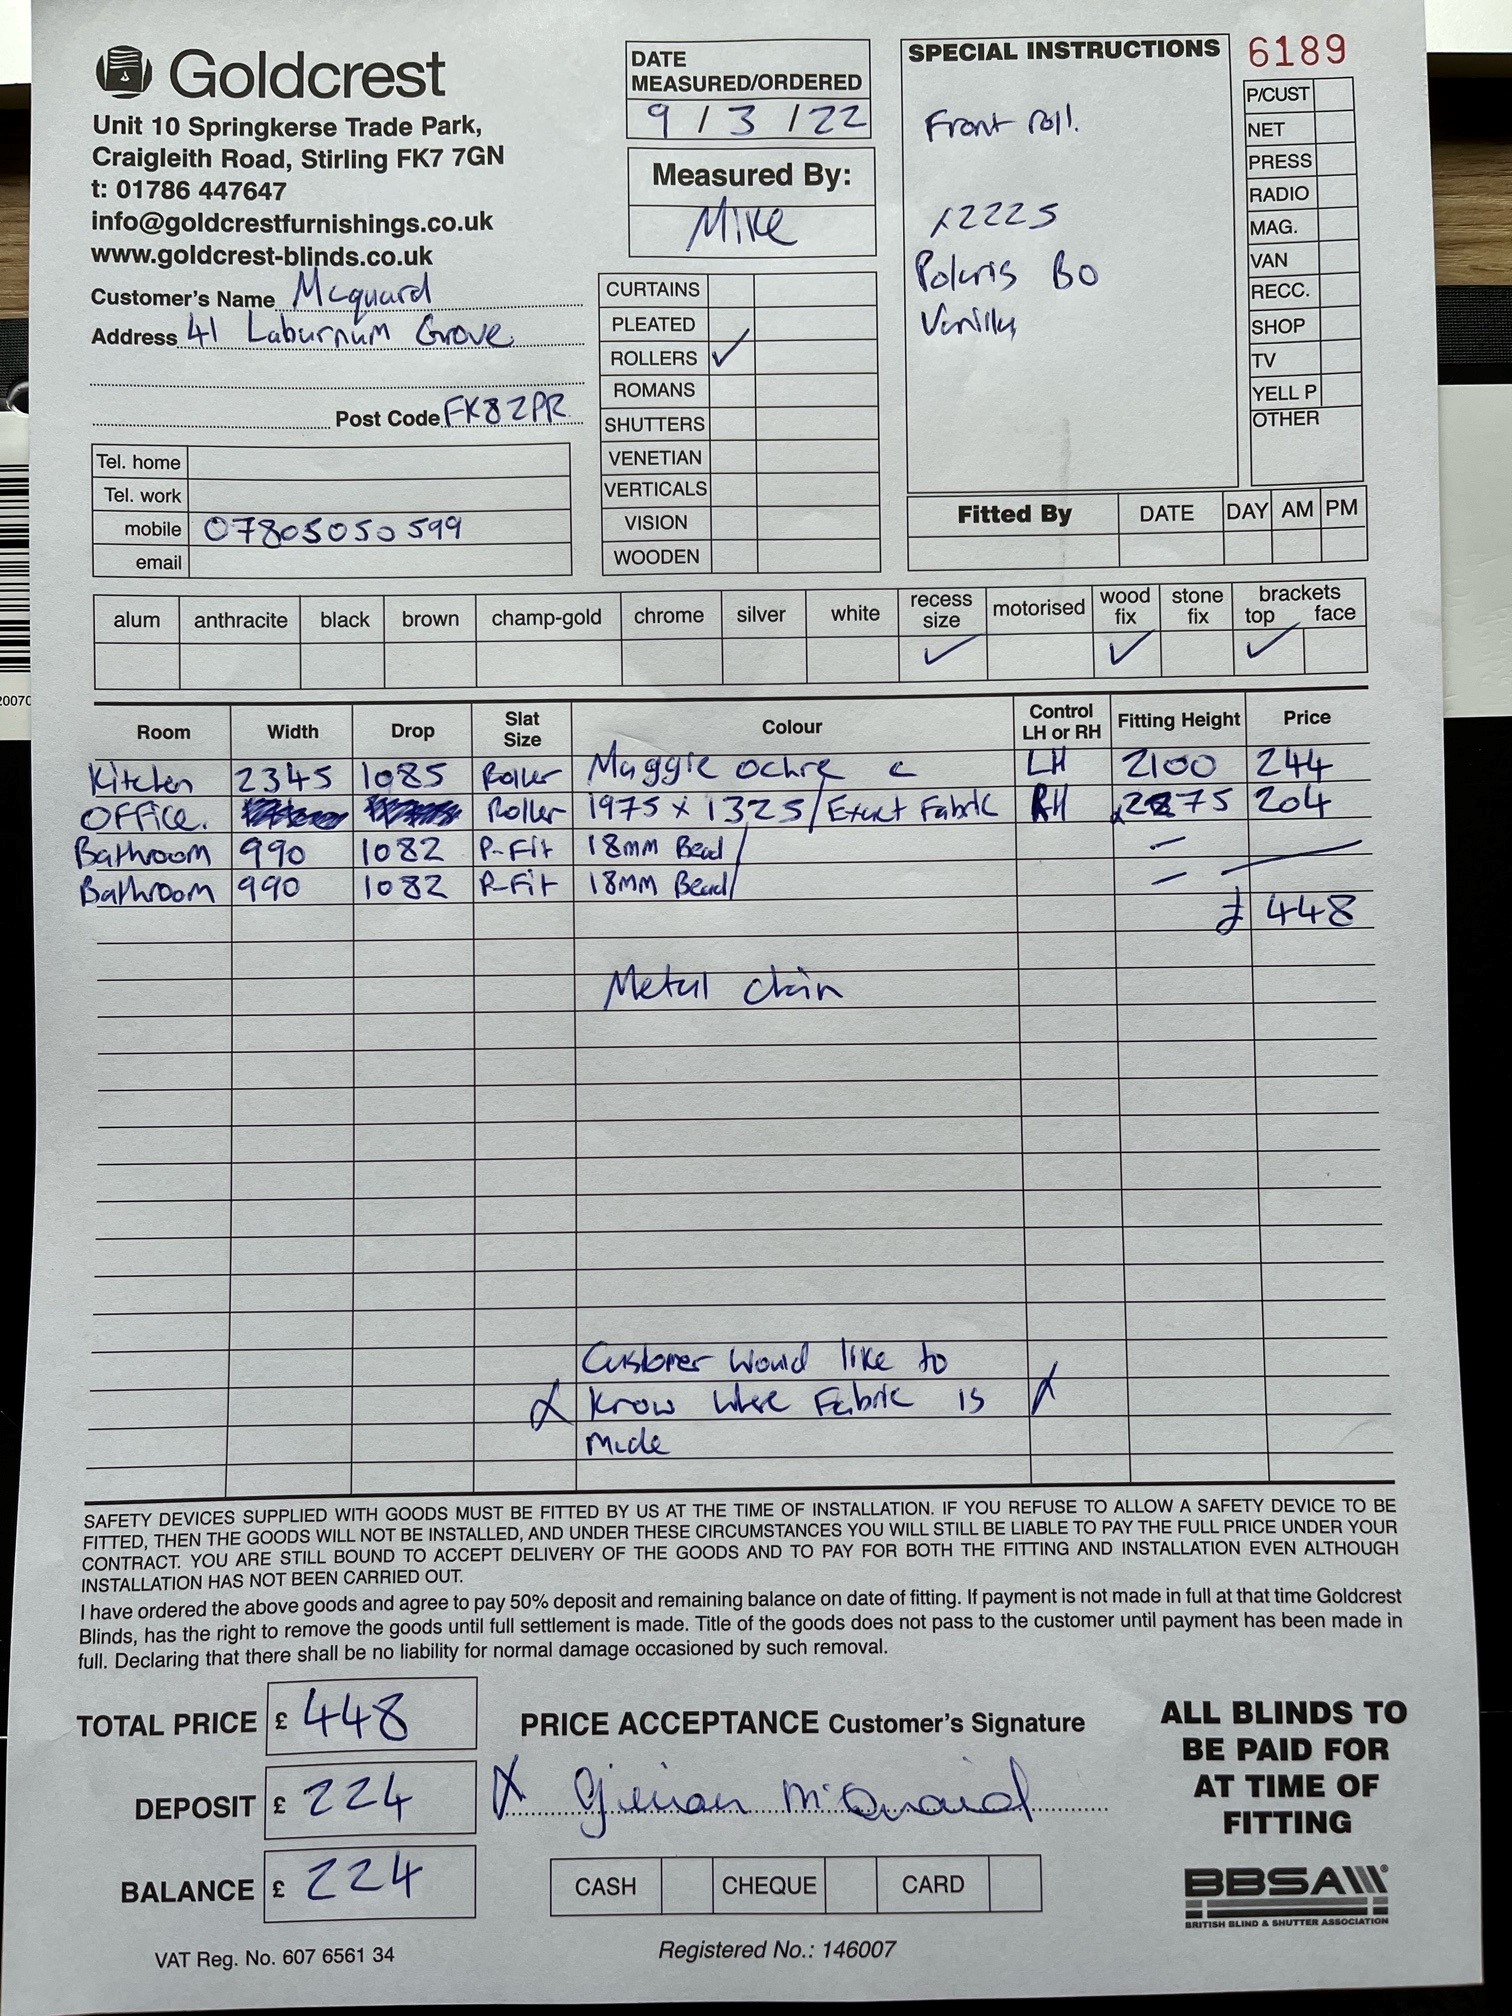 Goldcrest
Unit 10 Springkerse Trade Park,
Craigleith Road, Stirling FK7 7GN
t: 01786 447647
info@goldcrestfurnishings.co.uk
www.goldcrest-blinds.co.uk
Customer's Name Mcquard
Address 41 Laburnum Grove
Post Code FK8 2PR
Tel. home
Tel. work
mobile 07805050599
email
DATE
MEASURED/ORDERED
9 / 3 / 22
Measured By:
Mike
CURTAINS
PLEATED
ROLLERS ✓
ROMANS
SHUTTERS
VENETIAN
VERTICALS
VISION
WOODEN
SPECIAL INSTRUCTIONS
Front roll.
x2225
Polaris BO
Vanilla
6189
P/CUST
NET
PRESS
RADIO
MAG.
VAN
RECC.
SHOP
TV
YELL P
OTHER
Fitted By DATE DAY AM PM
alum anthracite black brown champ-gold chrome silver white recess size motorised wood fix stone fix brackets top face
✓ ✓ ✓
Room Width Drop Slat Size Colour Control LH or RH Fitting Height Price
Kitchen 2345 1085 Roller Maggie Ochre c LH 2100 244
OFFice. Roller 1975 x 1325 / Exact Fabric RH 2275 204
Bathroom 990 1082 P-Fit 18mm Bead / –
Bathroom 990 1082 P-Fit 18mm Bead / –
£ 448
Metal chain
Customer would like to
know where Fabric is
made
SAFETY DEVICES SUPPLIED WITH GOODS MUST BE FITTED BY US AT THE TIME OF INSTALLATION. IF YOU REFUSE TO ALLOW A SAFETY DEVICE TO BE
FITTED, THEN THE GOODS WILL NOT BE INSTALLED, AND UNDER THESE CIRCUMSTANCES YOU WILL STILL BE LIABLE TO PAY THE FULL PRICE UNDER YOUR
CONTRACT. YOU ARE STILL BOUND TO ACCEPT DELIVERY OF THE GOODS AND TO PAY FOR BOTH THE FITTING AND INSTALLATION EVEN ALTHOUGH
INSTALLATION HAS NOT BEEN CARRIED OUT.
I have ordered the above goods and agree to pay 50% deposit and remaining balance on date of fitting. If payment is not made in full at that time Goldcrest
Blinds, has the right to remove the goods until full settlement is made. Title of the goods does not pass to the customer until payment has been made in
full. Declaring that there shall be no liability for normal damage occasioned by such removal.
TOTAL PRICE £ 448
DEPOSIT £ 224
BALANCE £ 224
PRICE ACCEPTANCE Customer's Signature
X Gillian McQuaid
CASH CHEQUE CARD
ALL BLINDS TO
BE PAID FOR
AT TIME OF
FITTING
BBSA
BRITISH BLIND & SHUTTER ASSOCIATION
VAT Reg. No. 607 6561 34
Registered No.: 146007